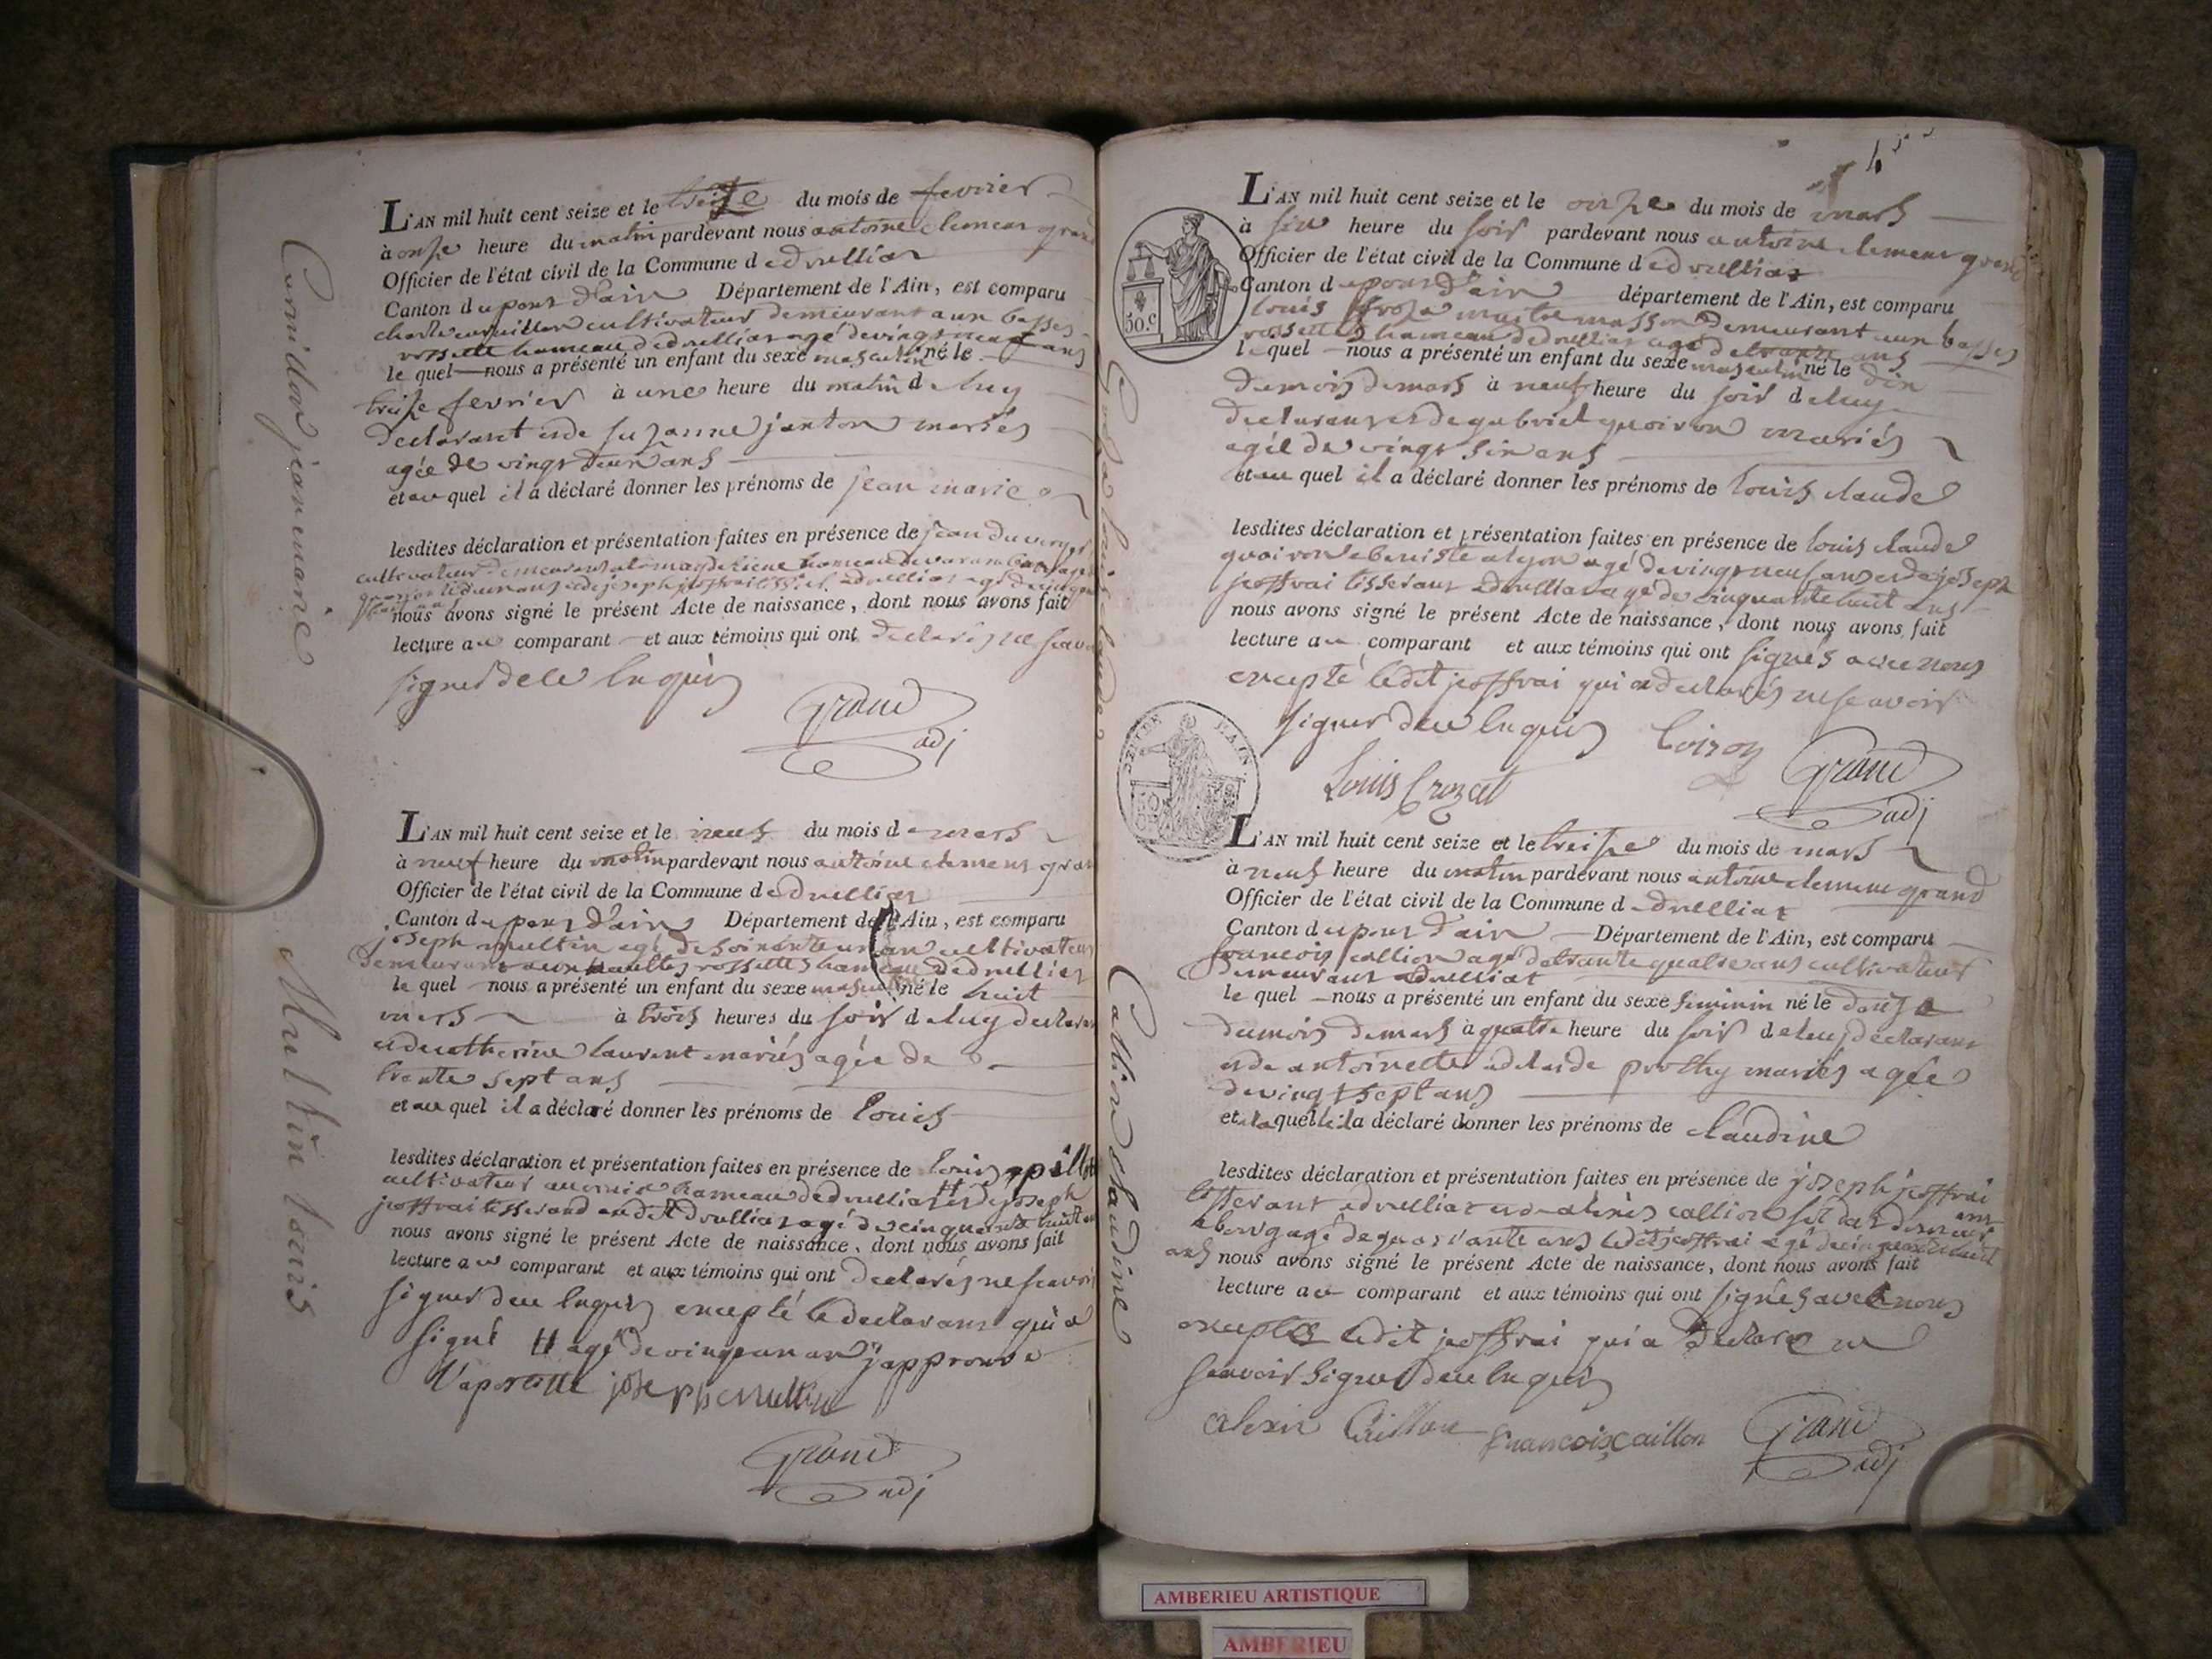 L'AN mil huit cent seize et le treize du mois de fevrier
à onze heure du matin pardevant nous antoine clement grand
Officier de l'état civil de la Commune de druilliat
Canton du pont d'ain Département de l'Ain, est comparu
cultivateur demeurant aux basses
rossette hameau de druilliat agé de vingt neuf ans
le quel nous a présenté un enfant du sexe masculin né le
treize fevrier à une heure du matin de luy
declarant et de suzanne janton mariés
agée de vingt deux ans
et au quel il a déclaré donner les prénoms de jean marie
lesdites déclaration et présentation faites en présence de jean
cultivateur demeurant hameau de varambon
nous avons signé le présent Acte de naissance, dont nous avons fait
lecture au comparant et aux témoins qui ont declarés ne scavoir
signer de ce enquis
Grand
adj
Cornidor jean marie
L'AN mil huit cent seize et le neuf du mois de mars
à neuf heure du matin pardevant nous antoine clement grand
Officier de l'état civil de la Commune de druilliat
Canton du pont d'ain Département de l'Ain, est comparu
joseph multin agé de soixante un an cultivateur
demeurant aux hautes rossettes hameau de druilliat
le quel nous a présenté un enfant du sexe masculin né le huit
mars à trois heures du soir de luy declarant
et de catherine laurent mariés agée de
trente sept ans
et au quel il a déclaré donner les prénoms de louis
lesdites déclaration et présentation faites en présence de louis
cultivateur hameau de druilliat et de joseph
jeoffrai tisserand audit druilliat agé de cinquante huit ans
nous avons signé le présent Acte de naissance, dont nous avons fait
lecture au comparant et aux témoins qui ont declarés ne scavoir
signer de ce enquis excepté le declarant qui a
signé # agé de vingt un an japprouve
joseph multin
Grand
adj
Multin louis
L'AN mil huit cent seize et le onze du mois de mars
à six heure du soir pardevant nous antoine clement grand
Officier de l'état civil de la Commune de druilliat
Canton du pont d'ain département de l'Ain, est comparu
louis maitre masson demeurant aux basses
rossettes hameau de druilliat agé de trente ans
le quel nous a présenté un enfant du sexe masculin né le dix
du mois de mars à neuf heure du soir de luy
declarant et de gabriel quoiron mariés
agée de vingt six ans
et au quel il a déclaré donner les prénoms de louis claude
lesdites déclaration et présentation faites en présence de louis claude
quoiron ebeniste a lyon agé de vingt neuf ans et de joseph
jeoffrai tisserant a druilliat agé de cinquante huit ans
nous avons signé le présent Acte de naissance, dont nous avons fait
lecture au comparant et aux témoins qui ont signés avec nous
excepté ledit jeoffrai qui a declarés ne scavoir
signer de ce enquis Coiron
Louis Crozet Grand
adj
50.c
L'AN mil huit cent seize et le treize du mois de mars
à neuf heure du matin pardevant nous antoine clement grand
Officier de l'état civil de la Commune de druilliat
Canton du pont d'ain Département de l'Ain, est comparu
francois callion agé de trante quatre ans cultivateur
demeurant a druilliat
le quel nous a présenté un enfant du sexe feminin né le douze
du mois de mars à quatre heure du soir de luy declarant
et de antoinette adelaide prothy mariés agée
de vingt sept ans
et a laquelle il a déclaré donner les prénoms de claudine
lesdites déclaration et présentation faites en présence de joseph jeoffrai
tisserant a druilliat et de alexis callion
bourg agé de quarante ans ledit jeoffrai agé de cinquante huit
ans nous avons signé le présent Acte de naissance, dont nous avons fait
lecture au comparant et aux témoins qui ont signés avec nous
excepté ledit jeoffrai qui a declaré ne
scavoir signer de ce enquis
alexis Caillon francois caillon Grand
adj
Callion claudine
AMBERIEU ARTISTIQUE
AMBERIEU